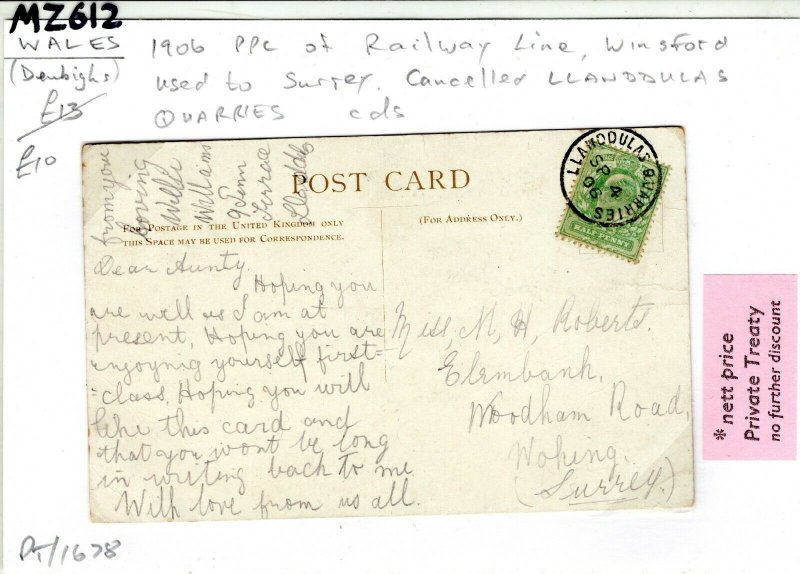 MZ612
WALES
(Denbighs)
£13
£10
1906 PPC of Railway Line, Winsford
used to Surrey. Cancelled LLANDDULAS
QUARRIES cds
from your
loving
Willie
Williams
Terrace
POST CARD
FOR POSTAGE IN THE UNITED KINGDOM ONLY
THIS SPACE MAY BE USED FOR CORRESPONDENCE.
(FOR ADDRESS ONLY.)
LLANDDULAS QUARRIES
SP 4
06
HALF PENNY
Dear Aunty.
Hoping you
are well as I am at
present, Hoping you are
engoynig yourself first=
=class, Hoping you will
like this card and
that you wont be long
in writing back to me
With love from us all.
Miss, M, H, Roberts.
Elembank,
Woodham Road,
Woking.
(Surrey.)
* nett price
Private Treaty
no further discount
PT/1678